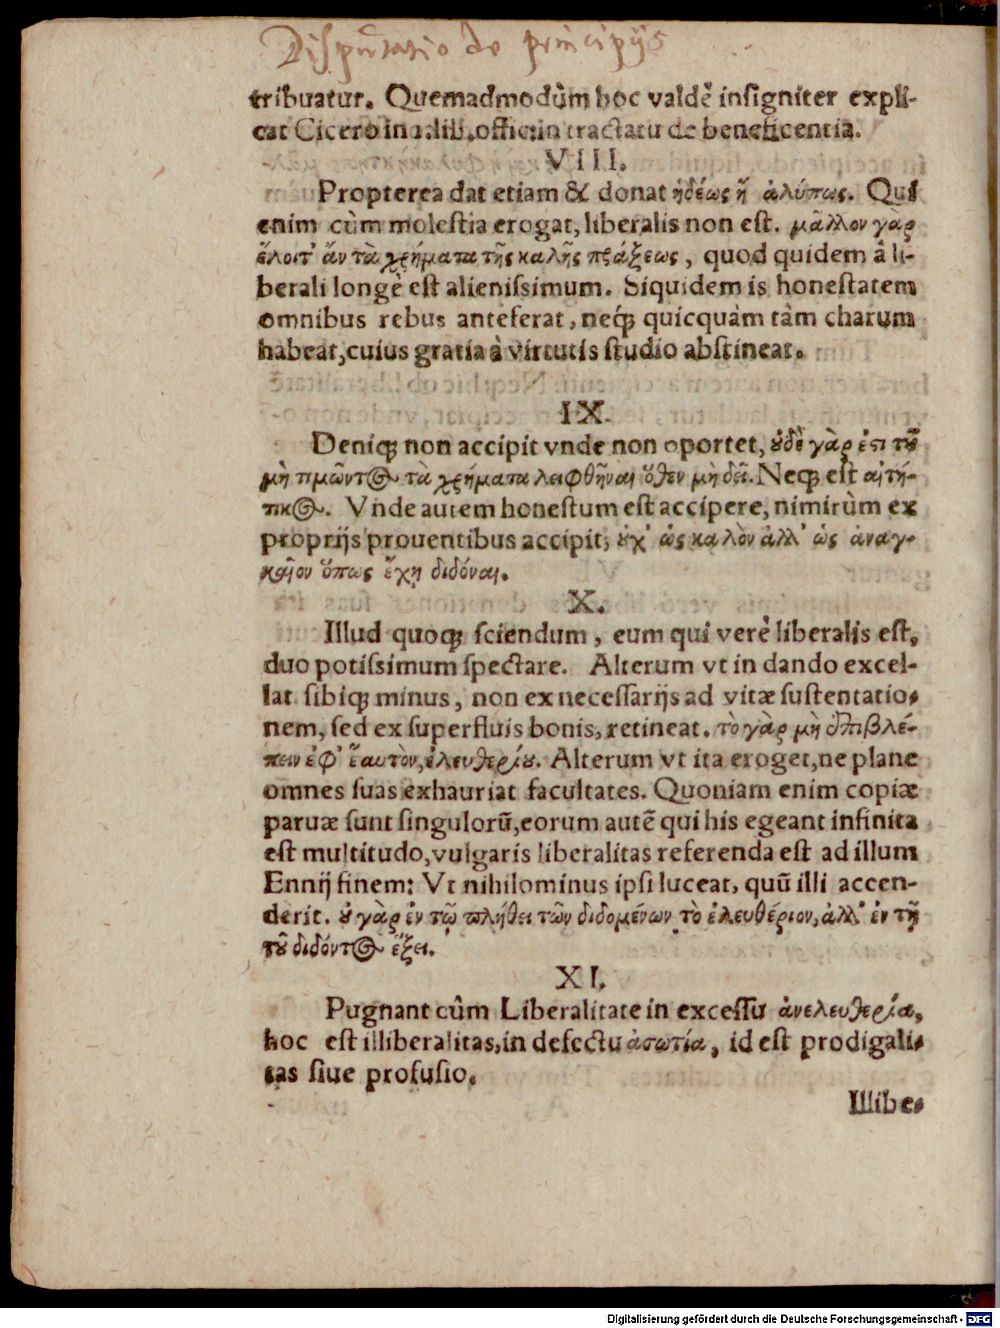 Disputatio de principijs
tribuatur. Quemadmodùm hoc valdè insigniter expli-
cat Cicero in 1. lib. offic. in tractatu de beneficentia.
VIII.
Propterea dat etiam & donat ἡδέως ἢ ἀλύπως. Qui
enim cùm molestia erogat, liberalis non est. μᾶλλον γὰρ
ἕλοιτ' ἂν τὰ χρήματα τῆς καλῆς πράξεως, quod quidem à li-
berali longè est alienissimum. Siquidem is honestatem
omnibus rebus anteferat, neq́; quicquàm tàm charum
habeat, cuius gratia à virtutis studio abstineat.
IX.
Deniq; non accipit vnde non oportet, ȣ̓δὲ γὰρ ἐπὶ τȣ͂
μὴ τιμῶντος τὰ χρήματα λειφθῆναι ὅθεν μὴ δεῖ. Neq; est αἰτή-
τικος. Vnde autem honestum est accipere, nimirùm ex
proprijs prouentibus accipit, ȣ̓χ' ὡς καλὸν ἀλλ' ὡς ἀναγ-
καῖον ὅπως ἔχῃ διδόναι.
X.
Illud quoq; sciendum, eum qui verè liberalis est,
duo potissimum spectare. Alterum vt in dando excel-
lat sibiq; minus, non ex necessarijs ad vitæ sustentatio-
nem, sed ex superfluis bonis, retineat. τὸ γὰρ μὴ ἐπιβλέ-
πειν ἐφ' ἑαυτὸν, ἐλευθερίȣ. Alterum vt ita eroget, ne plane
omnes suas exhauriat facultates. Quoniam enim copiæ
paruæ sunt singulorū, eorum autē qui his egeant infinita
est multitudo, vulgaris liberalitas referenda est ad illum
Ennij finem: Vt nihilominus ipsi luceat, quū illi accen-
derit. ȣ̓ γὰρ ἐν τῷ πλήθει τῶν διδομένων τὸ ἐλευθέριον, ἀλλ' ἐν τῇ
τȣ͂ διδόντος ἕξει.
XI.
Pugnant cûm Liberalitate in excessu ἀνελευθερία,
hoc est illiberalitas, in defectu ἀσωτία, id est prodigali-
tas siue profusio.
Illibe-
Digitalisierung gefördert durch die Deutsche Forschungsgemeinschaft - DFG